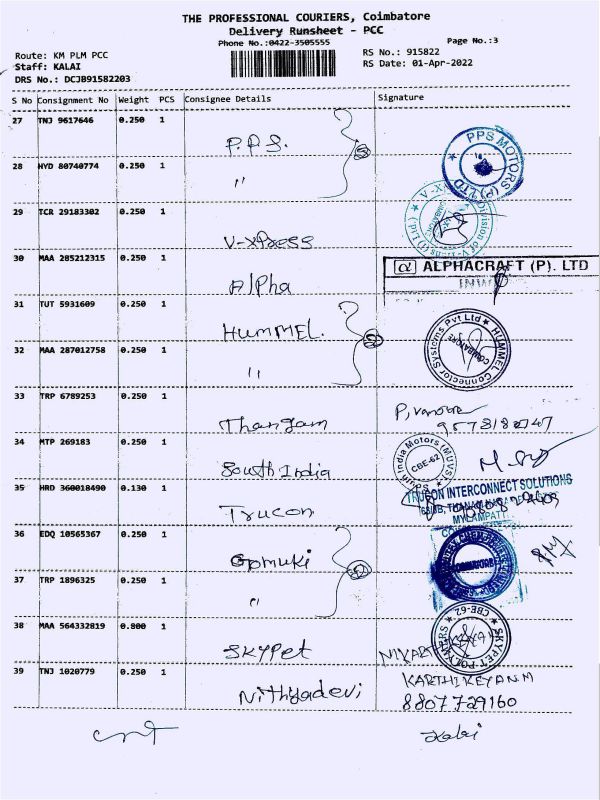 THE PROFESSIONAL COURIERS, Coimbatore
Delivery Runsheet - PCC
Phone No.:0422-3505555
Page No.:3
Route: KM PLM PCC
RS No.: 915822
Staff: KALAI
RS Date: 01-Apr-2022
DRS No.: DCJB91582203
S No Consignment No Weight PCS Consignee Details Signature
27 TNJ 9617646 0.250 1 P.P.S.
PPS MOTORS (P) LTD
28 HYD 80740774 0.250 1 "
29 TCR 29183302 0.250 1 V-XPress
30 MAA 285212315 0.250 1 Alpha
α ALPHACRAFT (P). LTD
31 TUT 5931609 0.250 1 HUMMEL.
HUMMEL Connector Systems Pvt Ltd
COIMBATORE
32 MAA 287012758 0.250 1 "
33 TRP 6789253 0.250 1 Thangam
34 MTP 269183 0.250 1 South India
South India Motors (MUVS)
CBE-62
35 HRD 360018490 0.130 1 Trucon
TRUCON INTERCONNECT SOLUTIONS
36 EDQ 10565367 0.250 1 Gomuki
37 TRP 1896325 0.250 1 "
38 MAA 564332819 0.800 1 SKYPet
SKYPET POLYMERS
CBE-62
39 TNJ 1020779 0.250 1 Nithyadevi
KARTHIKEYAN.M
8807729160
Kalai